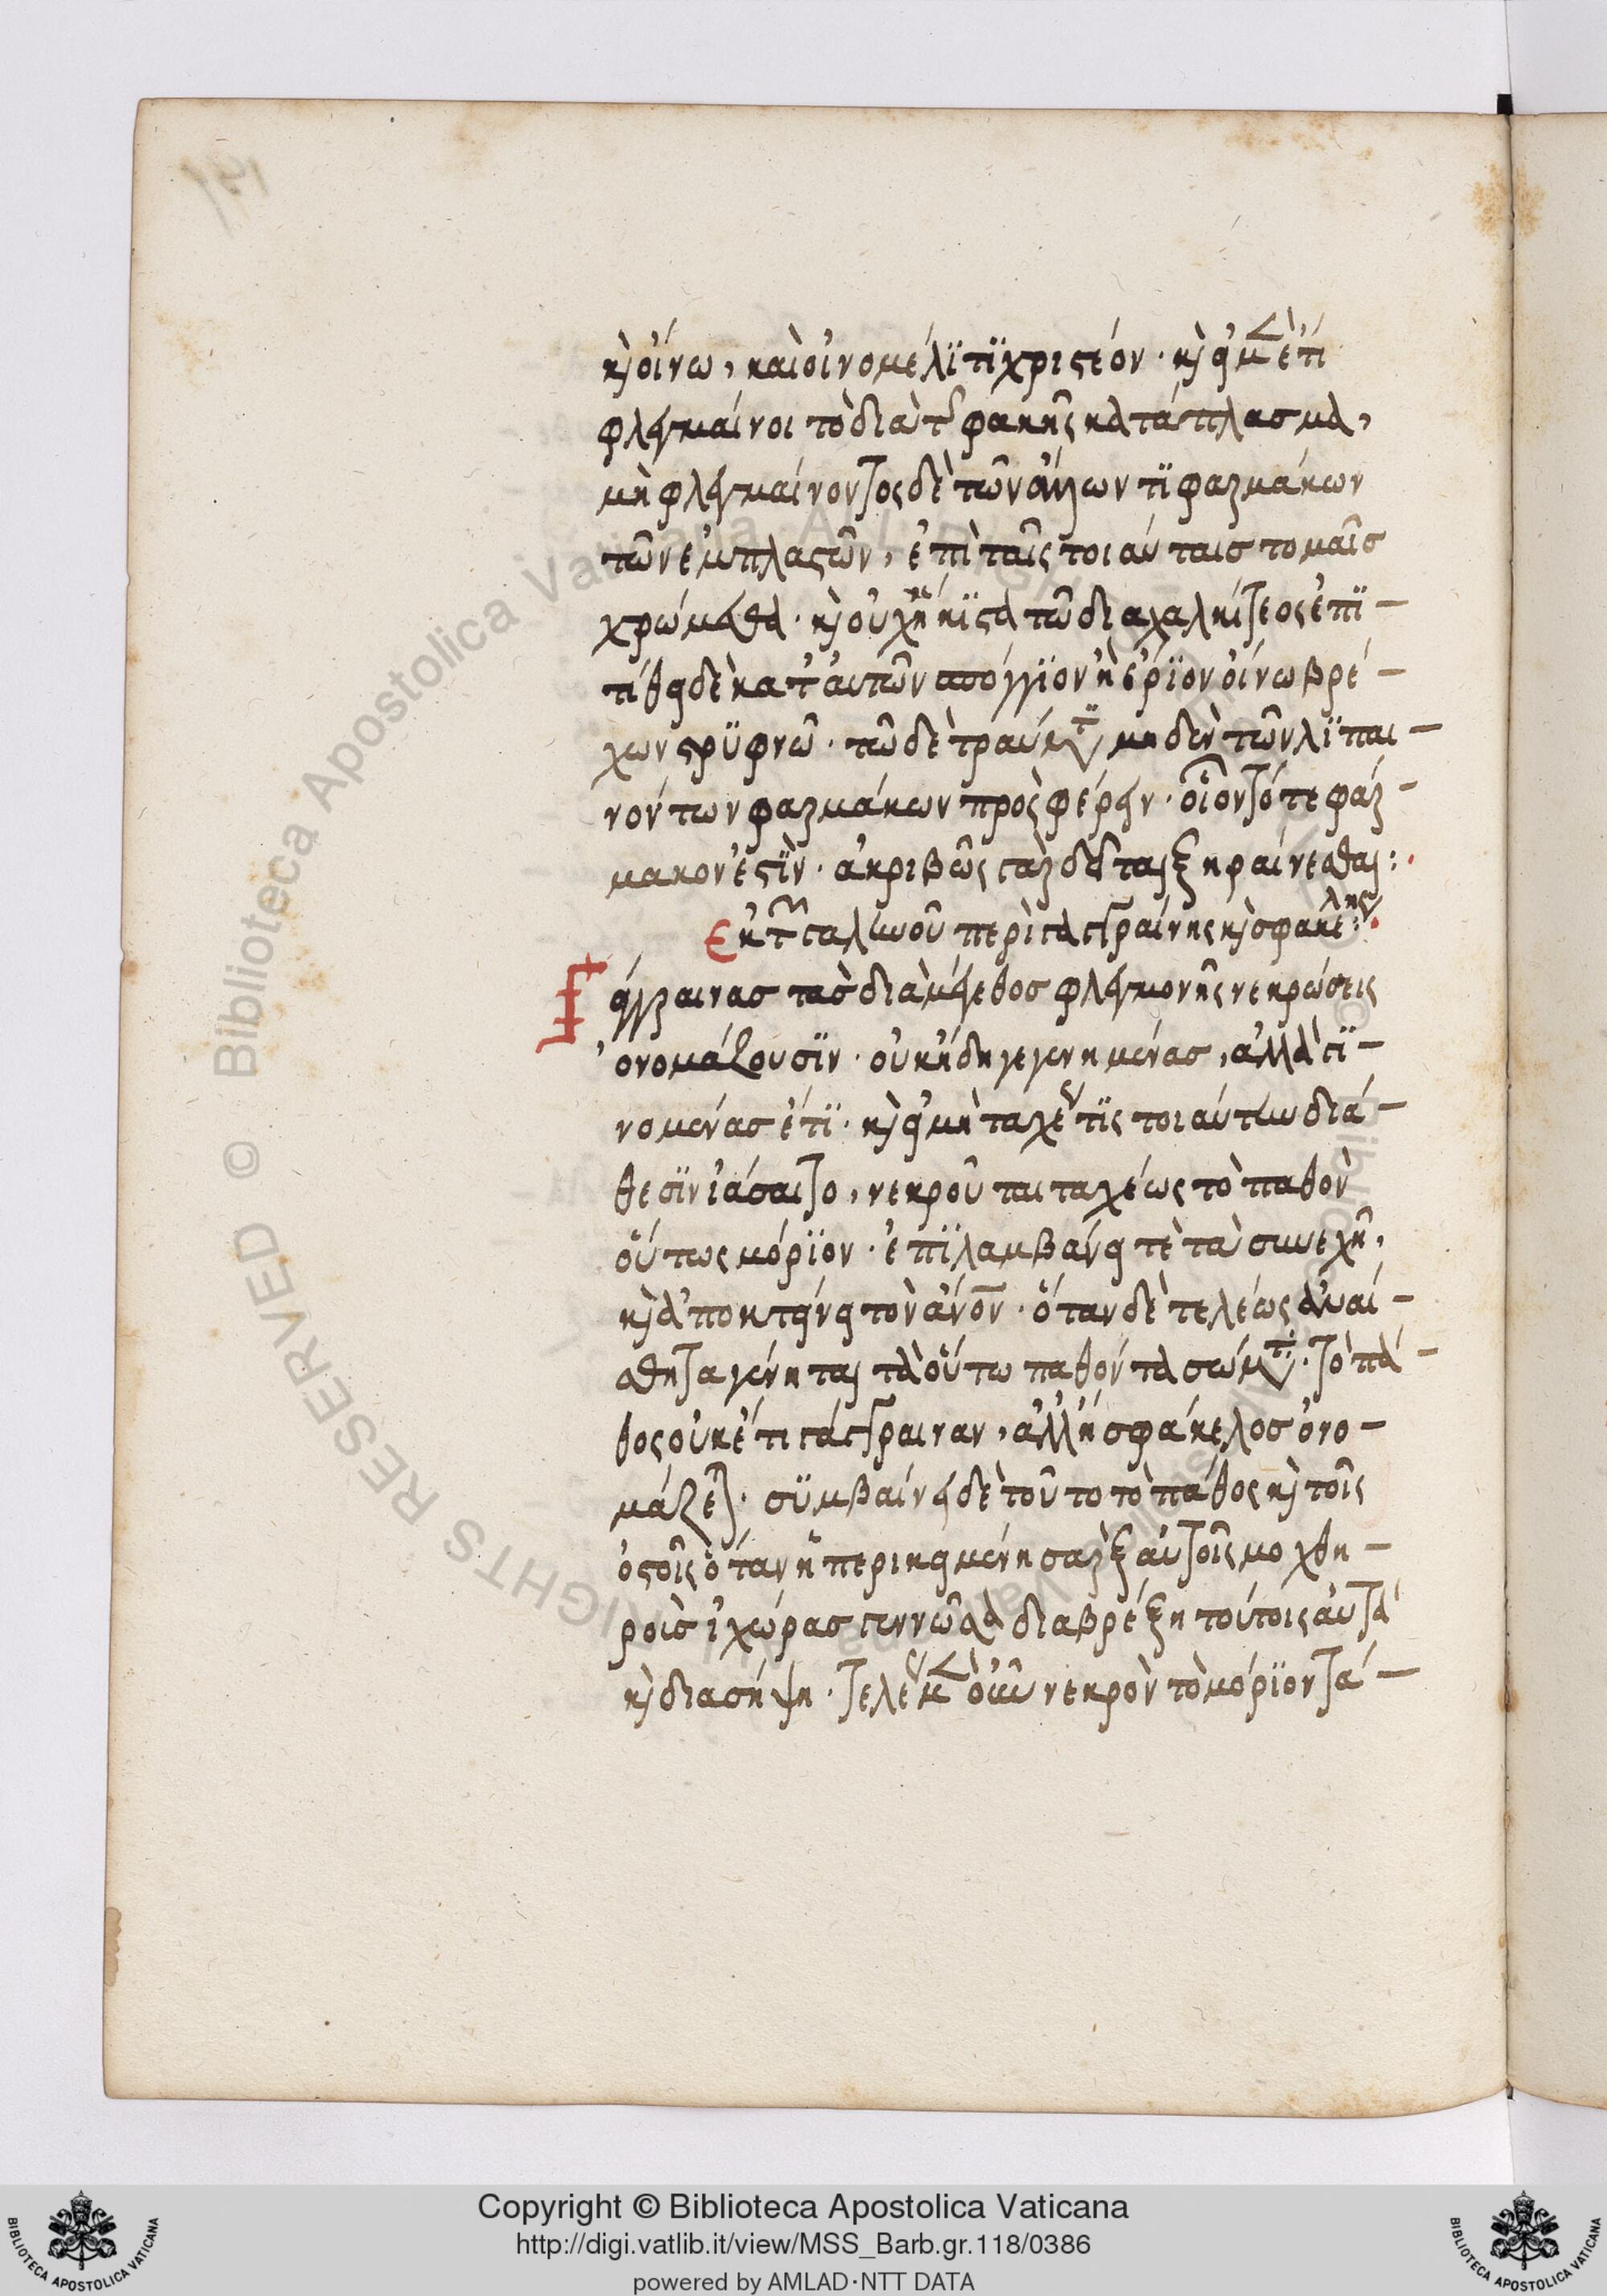 κὶ οἴνω, καὶ οἰνομέλϊτϊ χριστέον. κὶ εἰ μὲν ἔτι
φλεγμαίνοι τὸ διὰ τῆς φακῆς κατάπλασμα,
μὴ φλεγμαίνοντος δὲ τῶν ἄλλων τϊ φαρμάκων
τῶν ἐμπλαστῶν, ἐπὶ ταῖς τοιαύταισ τομαῖσ
χρώμεθα. κὶ οὐχ ἥκϊστα τῶ διαχαλκίτεος ἐπϊ-
τίθει δὲ κατ' αὐτῶν σπόγγϊον ἢ ἔρϊον οἴνω βρέ-
χων στρϋφνῶ. τῶ δὲ τραύματϊ μηδὲν τῶν λϊπαι-
νόντων φαρμάκων πρὸςφέρειν. οἷον τό τε φάρ-
μακον ἐστϊν. ἀκριβῶς γὰρ δεῖται ξηραίνεσθαι:
Ἐκ τῶν γαληνοῦ περὶ γαγγραίνης κὶ σφακέλης:
Γάγγραινασ τασ διὰ μέγεθοσ φλεγμονῆς νεκρώσεις
ὀνομάζουσϊν. οὐκ ἤδη γεγενημένασ, ἀλλὰ γϊ-
νομένασ ἔτϊ. κὶ εἰ μὴ ταχέως τϊς τοιαύτην διά-
θεσϊν ἰάσαιτο, νεκροῦται ταχέως τὸ παθὸν
οὕτως μόρϊον. ἐπϊλαμβάνει τὲ τὰ συνεχῆ,
κὶ ἀποκτείνει τὸν ἄνον. ὅταν δὲ τελέως ἀναί-
σθητα γένηται τὰ οὕτω παθόντα σώματα. τὸ πά-
θος οὐκέτι γάγγραιναν, ἀλλ' ἢ σφάκελοσ ὀνο-
μάζεται. σϋμβαίνει δὲ τοῦτο τὸ πάθος κὶ τοῖς
ὀστοῖς ὅταν ἡ περικειμένη σαρξ αὐτοῖς μοχθη-
ροὺσ ἰχώρασ γεννῶσα διαβρέξη τούτοις αὐτὰ
κὶ διασήψη. τελέως μὲν οὖν νεκρὸν τὸ μόρϊον τά-
Copyright © Biblioteca Apostolica Vaticana
http://digi.vatlib.it/view/MSS_Barb.gr.118/0386
powered by AMLAD·NTT DATA
BIBLIOTECA APOSTOLICA VATICANA
BIBLIOTECA APOSTOLICA VATICANA